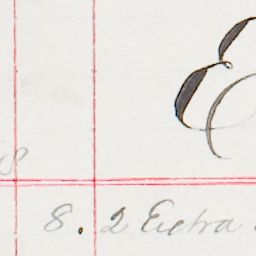 E
8
8. 2 Extra